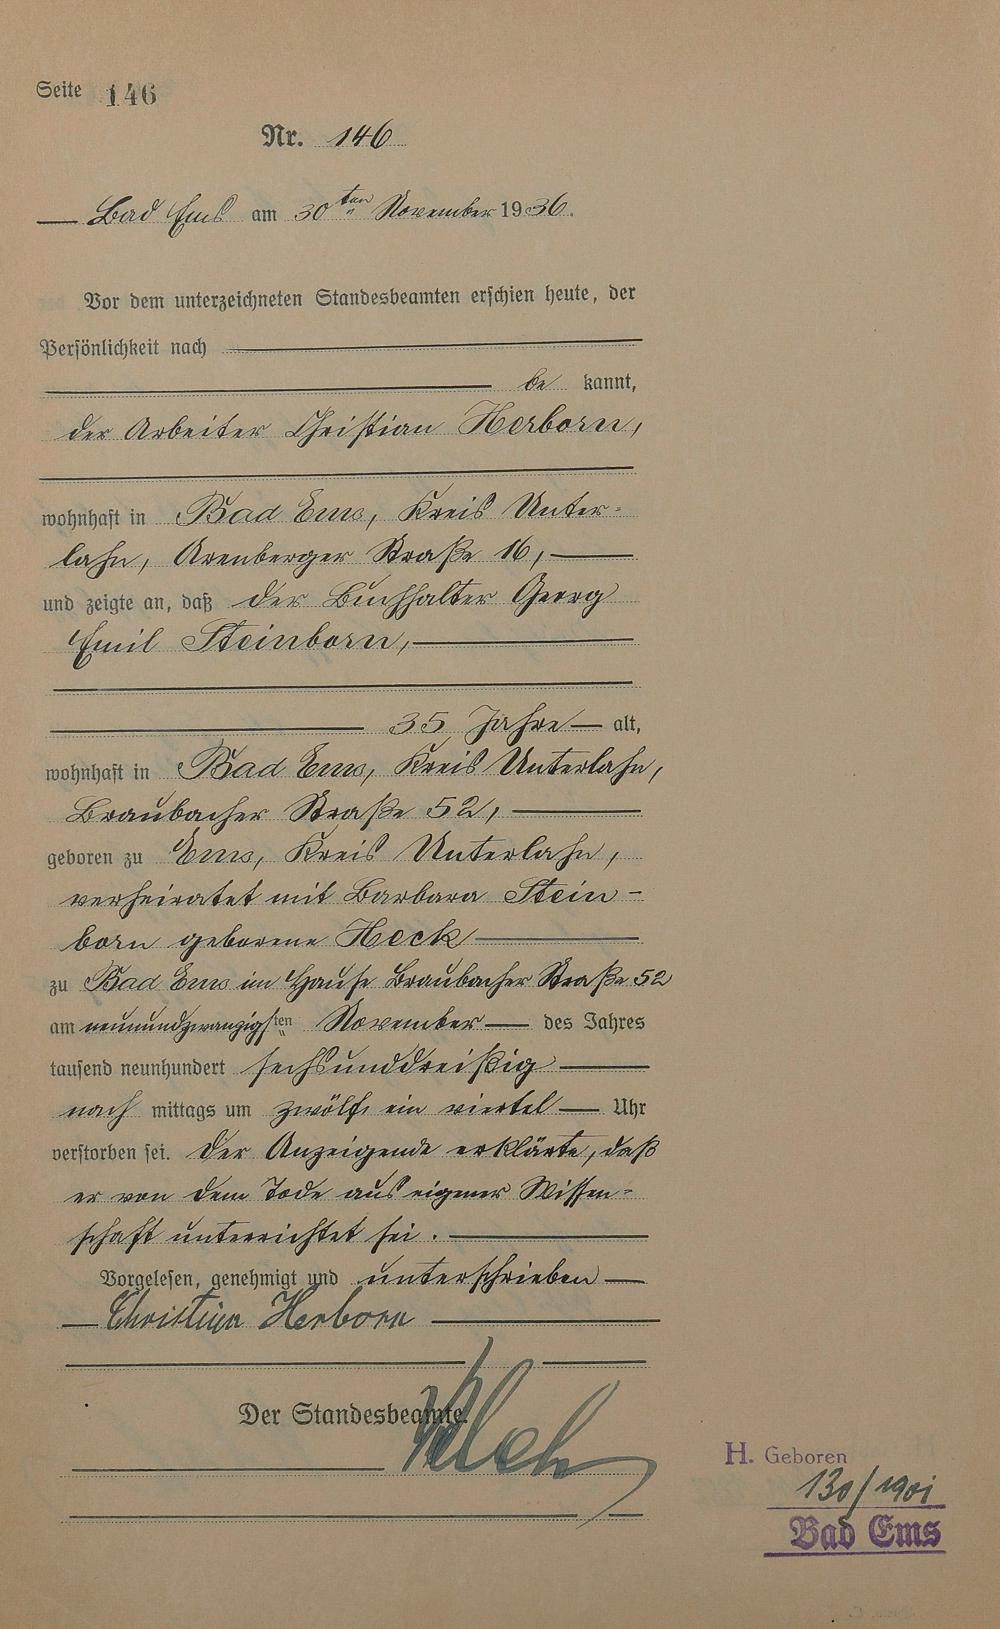 Seite 146
Nr. 146
Bad Ems am 30ten November 1936.
Vor dem unterzeichneten Standesbeamten erschien heute, der
Persönlichkeit nach
be kannt,
der Arbeiter Christian Herborn,
wohnhaft in Bad Ems, Kreis Unter-
lahn, Arenberger Straße 16,
und zeigte an, daß der Buchhalter Georg
Emil Steinborn,
35 Jahre alt,
wohnhaft in Bad Ems, Kreis Unterlahn,
Braubacher Straße 52,
geboren zu Ems, Kreis Unterlahn,
verheiratet mit Barbara Stein-
born geborene Heck
zu Bad Ems im Hause Braubacher Straße 52
am neunundzwanzigsten November des Jahres
tausend neunhundert sechsunddreißig
nach mittags um zwölf ein viertel Uhr
verstorben sei. Der Anzeigende erklärte, daß
er von dem Tode aus eigener Wissen-
schaft unterrichtet sei.
Vorgelesen, genehmigt und unterschrieben
Christian Herborn
Der Standesbeamte.
H. Geboren
130/1901
Bad Ems